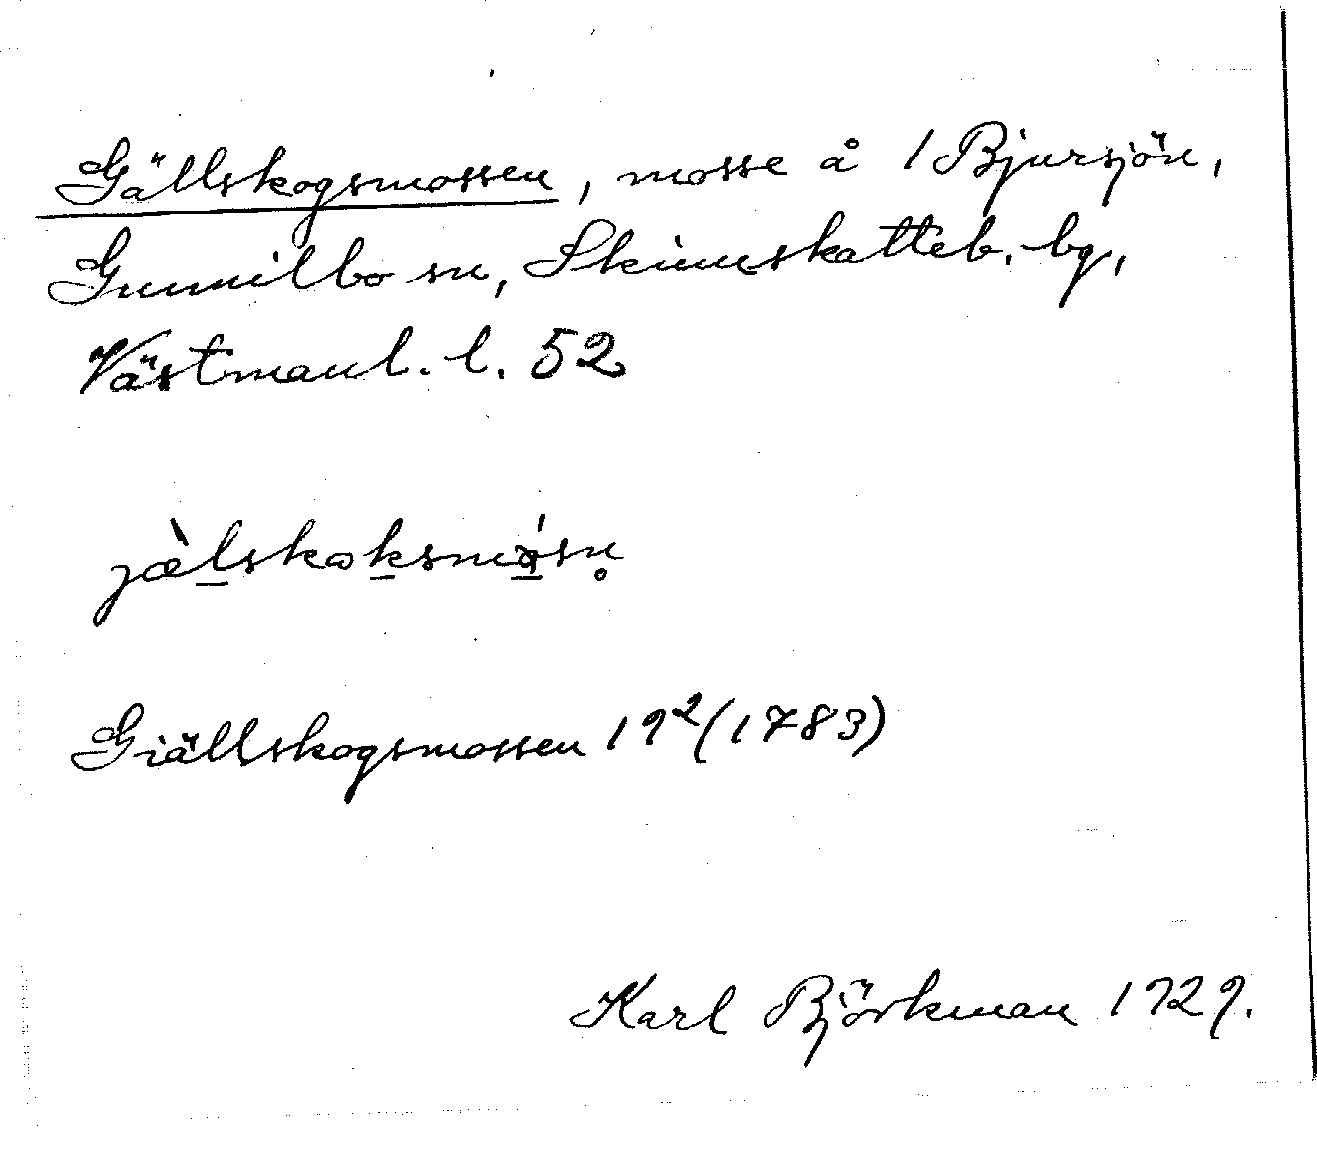 Gällskogsmossen, mosse å 1 Bjursjön,
Gunnilbo sn, Skinnskatteb. bg,
Västmanl. l. 52
jæ̀lskoksmósn̥
Giällskogsmossen 19² (1783)
Karl Björkman 1929.